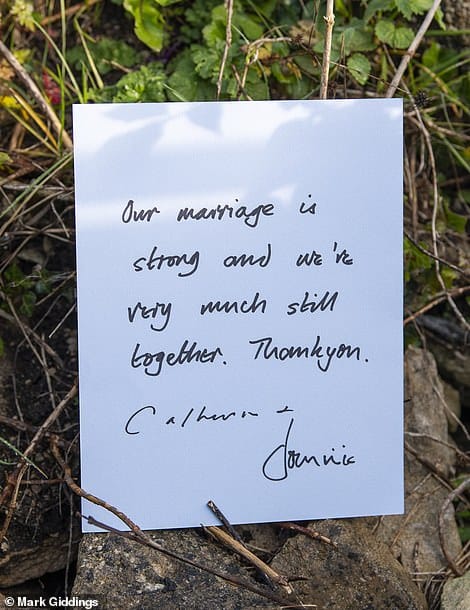 Our marriage is
strong and we're
very much still
together. Thankyou.
Catherine +
Dominic
© Mark Giddings